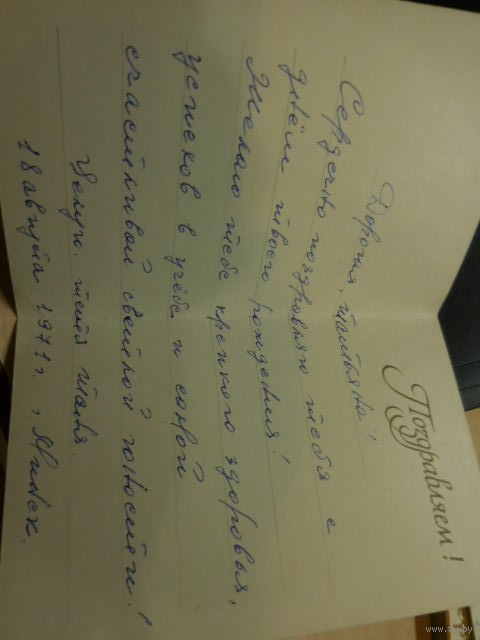 Поздравляем!
Дорогая, Татьяна!
Сердечно поздравляю тебя с
днём твоего рождения!
Желаю тебе крепкого здоровья,
успехов в учёбе и самой
счастливой светлой юности!
Целую. тётя Таня.
18 августа 1971 г. г. Минск.